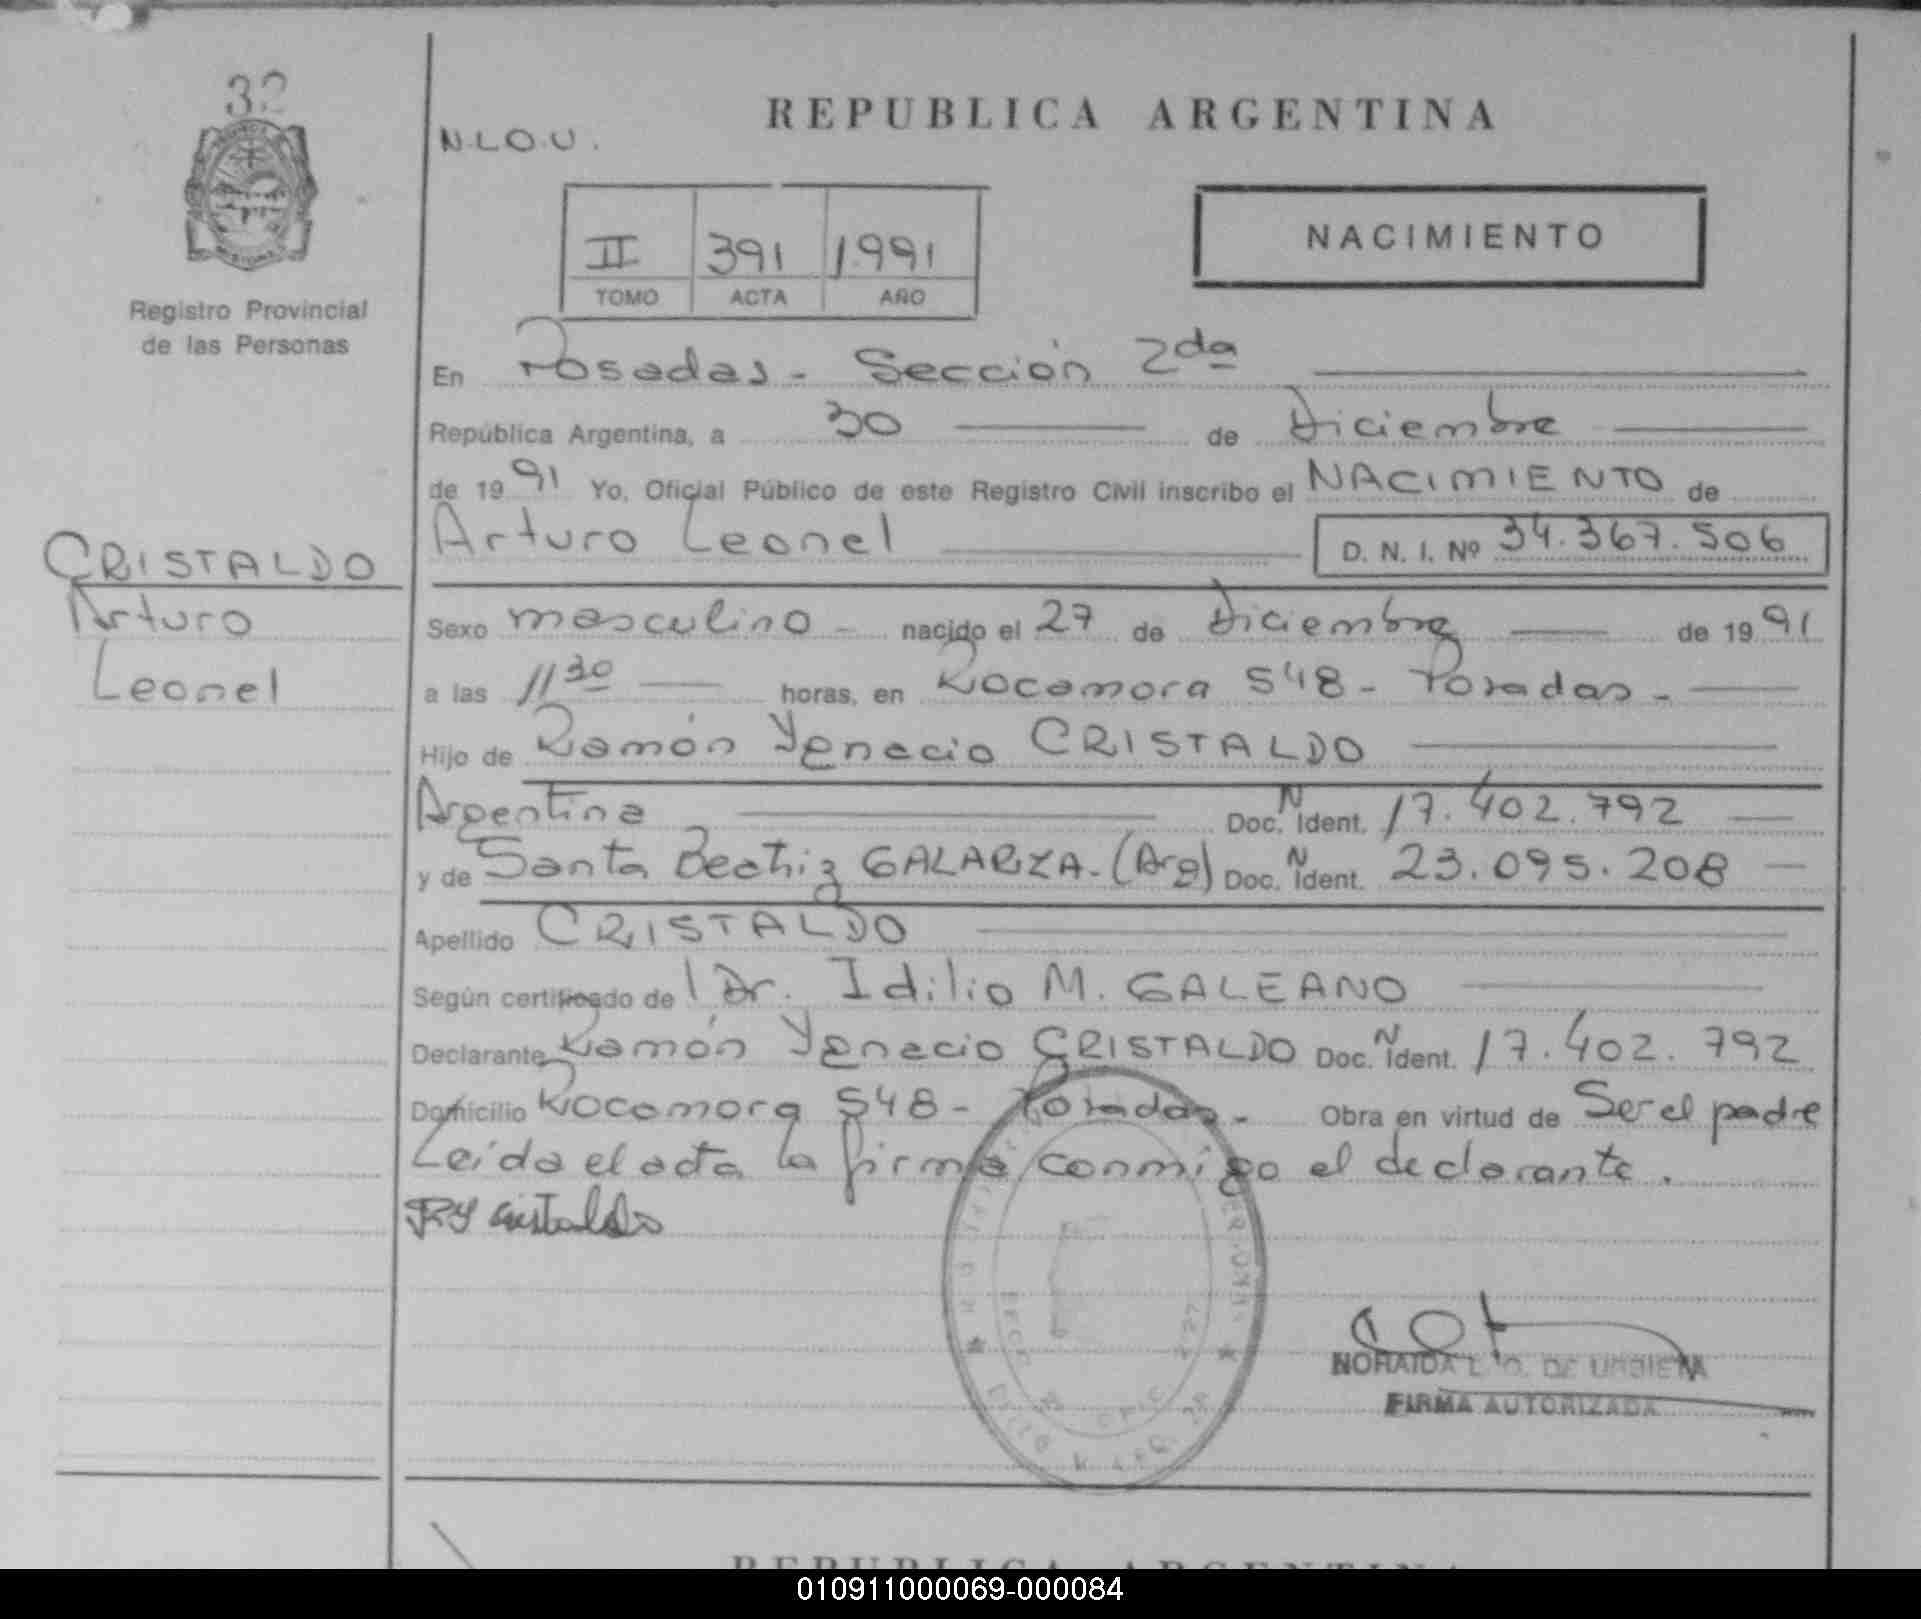 32
N.L.O.U.
REPUBLICA ARGENTINA
NACIMIENTO
II 391 1.991
TOMO ACTA AÑO
Registro Provincial
de las Personas
En Posadas - Sección 2da
República Argentina, a 30 de Diciembre
de 1991 Yo, Oficial Público de este Registro Civil inscribo el NACIMIENTO de
Arturo Leonel D. N. I. Nº 34.367.506
CRISTALDO
Arturo
Leonel
Sexo masculino - nacido el 27 de Diciembre de 1991
a las 11 30 horas, en Rocamora 548 - Posadas -
Hijo de Ramón Ygnacio CRISTALDO
Argentina Doc. N Ident. 17.402.792
y de Santa Beatriz GALARZA - (Arg) Doc. N Ident. 23.095.208
Apellido CRISTALDO
Según certificado de l Dr. Idilio M. GALEANO
Declarante Ramón Ygnacio CRISTALDO Doc. N Ident. 17.402.792
Domicilio Rocamora 548 - Posadas - Obra en virtud de Ser el padre
Leída el acta la firma conmigo el declarante.
RY Cristaldo
NORAIDA L. O. DE
FIRMA AUTORIZADA
REPUBLICA ARGENTINA
010911000069-000084